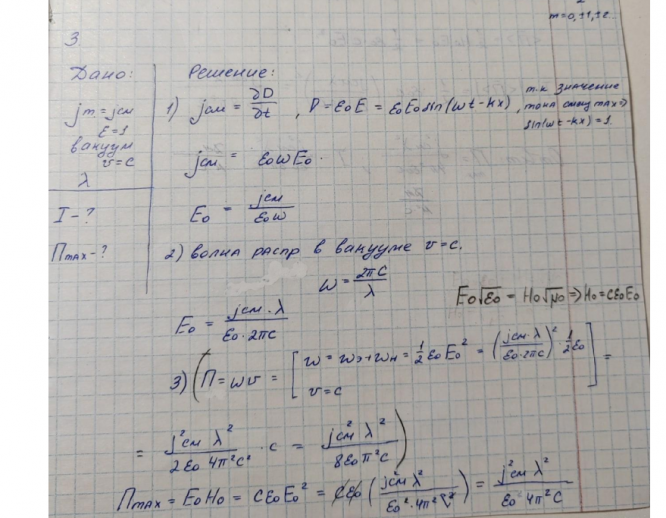 m=0,±1,±2
3
Дано:
jm = jсм
ε=1
вакуум
v=c
λ
I-?
Пmax-?
Решение:
1) jсм = ∂D/∂t , D=ε₀E = ε₀E₀sin(ωt-кx) , т.к значение
тока смещ max ⇒
sin(ωt-кx)=1
jсм = ε₀ωE₀.
E₀ = jсм/ε₀ω
2) волна распр в вакууме v=c.
ω = 2πc/λ
E₀√ε₀ = H₀√μ₀ ⇒ H₀=cε₀E₀
E₀ = jсм·λ/ε₀·2πc
3) (П=wv = [w = wэ+wм = 1/2 ε₀E₀² = (jсм·λ/ε₀·2πc)² · 1/2 ε₀
v=c] =
= j²см λ²/2ε₀ 4π²c² · c = j²см λ²/8ε₀π²c)
Пmax = E₀H₀ = cε₀E₀² = cε₀ (j²см λ²/ε₀²·4π²c²) = j²см λ²/ε₀ 4π²c